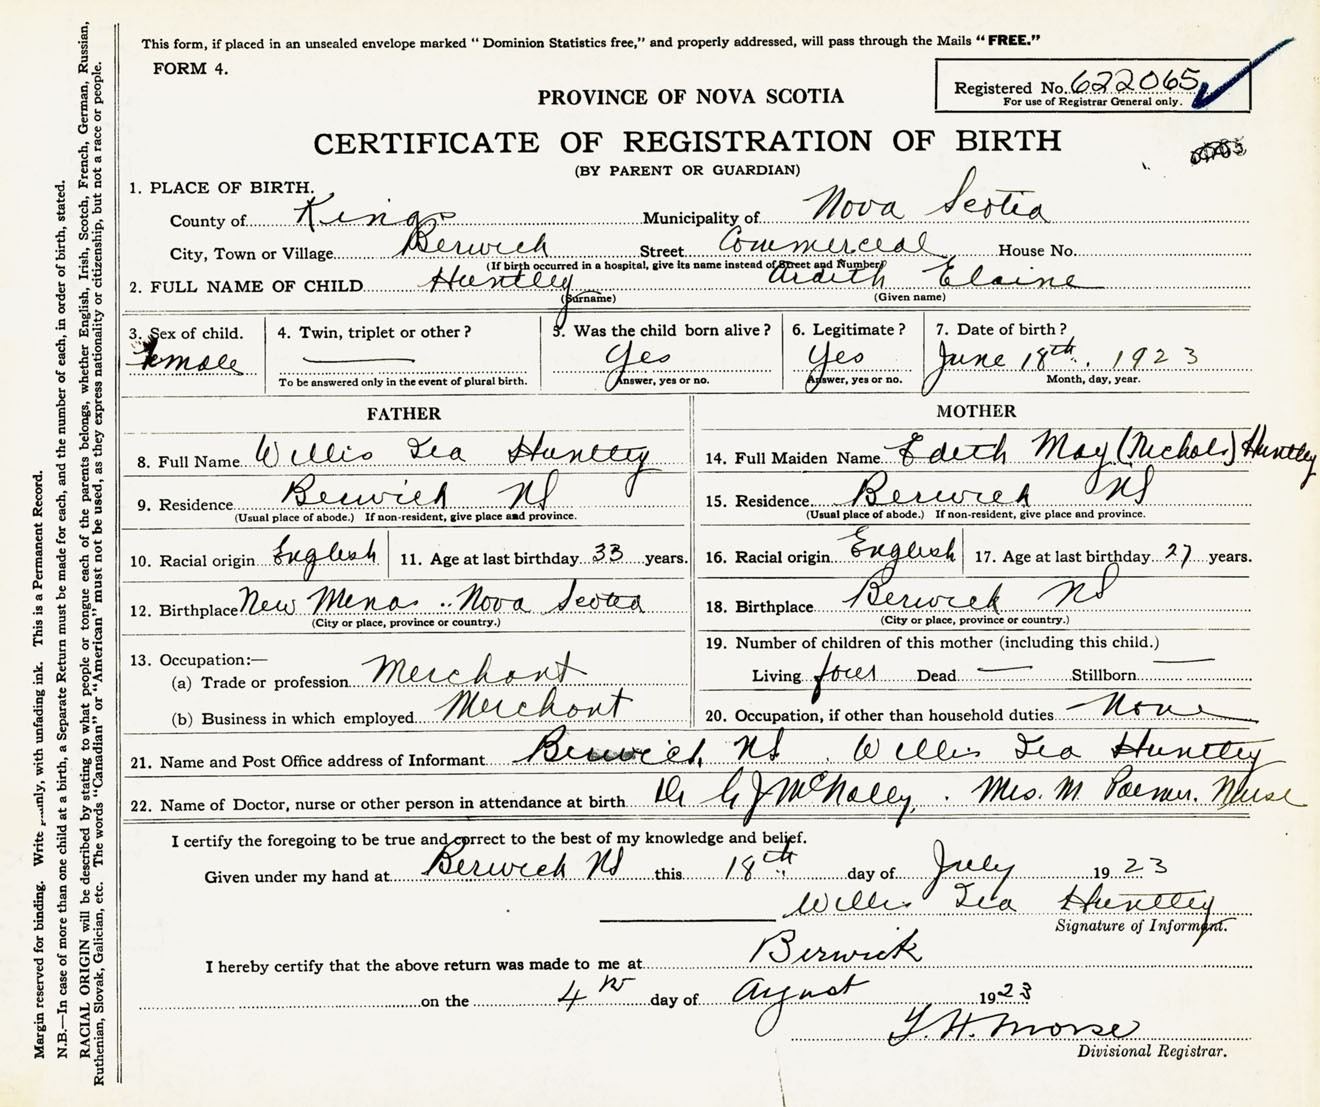 This form, if placed in an unsealed envelope marked " Dominion Statistics free," and properly addressed, will pass through the Mails "FREE."
FORM 4.
Registered No. 622065
For use of Registrar General only.
PROVINCE OF NOVA SCOTIA
CERTIFICATE OF REGISTRATION OF BIRTH
(BY PARENT OR GUARDIAN)
1. PLACE OF BIRTH.
County of Kings Municipality of Nova Scotia
City, Town or Village Berwick Street Commercial House No.
(If birth occurred in a hospital, give its name instead of Street and Number)
2. FULL NAME OF CHILD Huntley Ardith Elaine
(Surname) (Given name)
3. Sex of child. 4. Twin, triplet or other? 5. Was the child born alive? 6. Legitimate? 7. Date of birth?
Female Yes Yes June 18th. 1923
To be answered only in the event of plural birth. Answer, yes or no. Answer, yes or no. Month, day, year.
FATHER
8. Full Name Willis Ira Huntley
9. Residence Berwick NS
(Usual place of abode.) If non-resident, give place and province.
10. Racial origin English 11. Age at last birthday 33 years.
12. Birthplace New Minas .. Nova Scotia
(City or place, province or country.)
13. Occupation:—
(a) Trade or profession Merchant
(b) Business in which employed Merchant
MOTHER
14. Full Maiden Name Edith May (Nichols) Huntley
15. Residence Berwick NS
(Usual place of abode.) If non-resident, give place and province.
16. Racial origin English 17. Age at last birthday 27 years.
18. Birthplace Berwick NS
(City or place, province or country.)
19. Number of children of this mother (including this child.)
Living four Dead — Stillborn —
20. Occupation, if other than household duties None
21. Name and Post Office address of Informant Berwick NS. Willis Ira Huntley
22. Name of Doctor, nurse or other person in attendance at birth Dr G J McNally. Mrs. M. Nurse
I certify the foregoing to be true and correct to the best of my knowledge and belief.
Given under my hand at Berwick NS this 18th day of July 1923
Willis Ira Huntley
Signature of Informant.
I hereby certify that the above return was made to me at Berwick
on the 4th day of August 1923
Morse
Divisional Registrar.
Margin reserved for binding. Write plainly, with unfading ink. This is a Permanent Record.
N.B.—In case of more than one child at a birth, a Separate Return must be made for each, and the number of each, in order of birth, stated.
RACIAL ORIGIN will be described by stating to what people or tongue each of the parents belongs, whether English, Irish, Scotch, French, German, Russian,
Ruthenian, Slovak, Galician, etc. The words "Canadian" or "American" must not be used, as they express nationality or citizenship, but not a race or people.